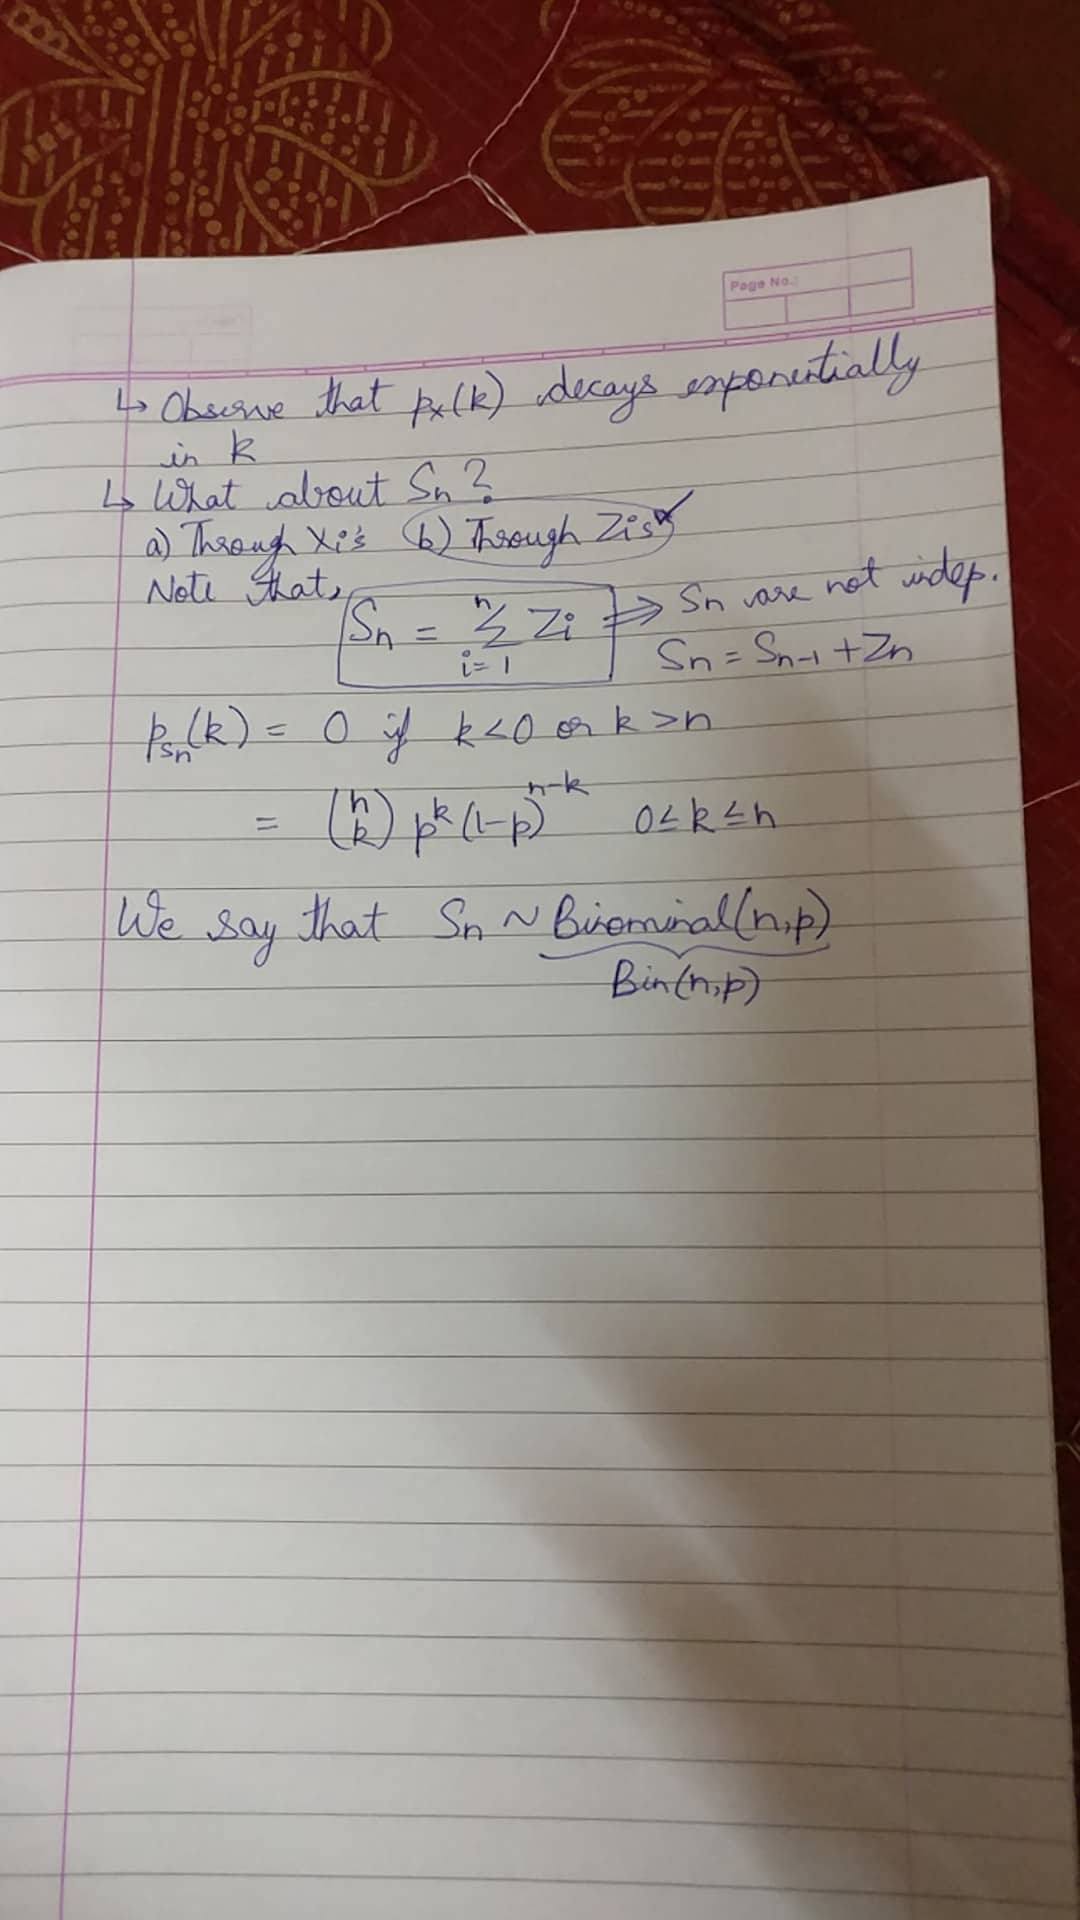 Page No.:
↳ Observe that pₓ(k) decays exponentially
in k
↳ What about Sn?
a) Through Xi's (b) Through Zi's ✓
Note that,
Sn = ∑_{i=1}^{n} Zi ⇒ Sn are not indep.
Sn = Sn-1 + Zn
p_{Sn}(k) = 0 if k<0 or k>n
= (n k) p^k (1-p)^{n-k} 0≤k≤n
We say that Sn ~ Binominal(n,p)
Bin(n,p)